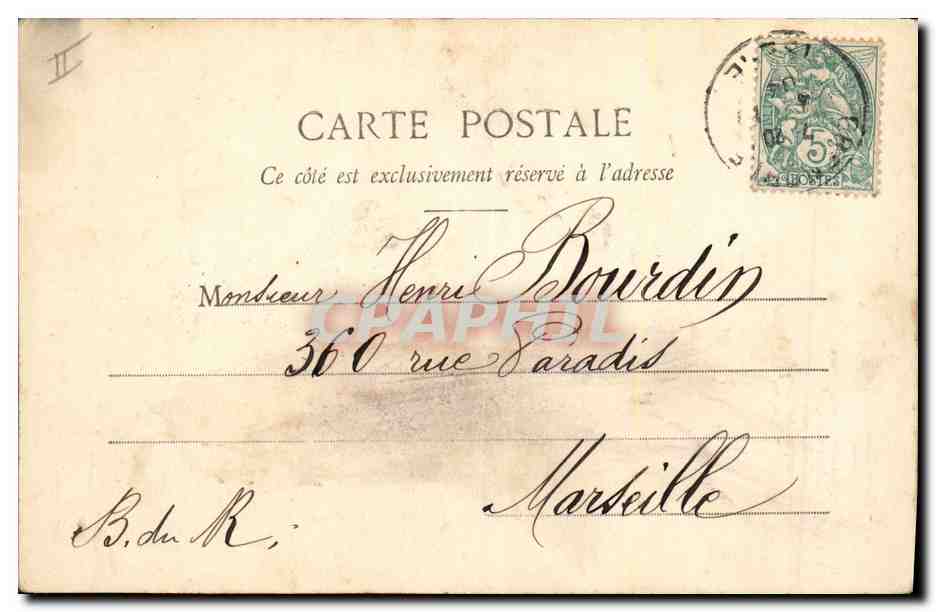 II
CARTE POSTALE
Ce côté est exclusivement réservé à l'adresse
5
POSTES
Monsieur Henri Bourdin
CPAPHIL
360 rue Paradis
Marseille
B. du R.